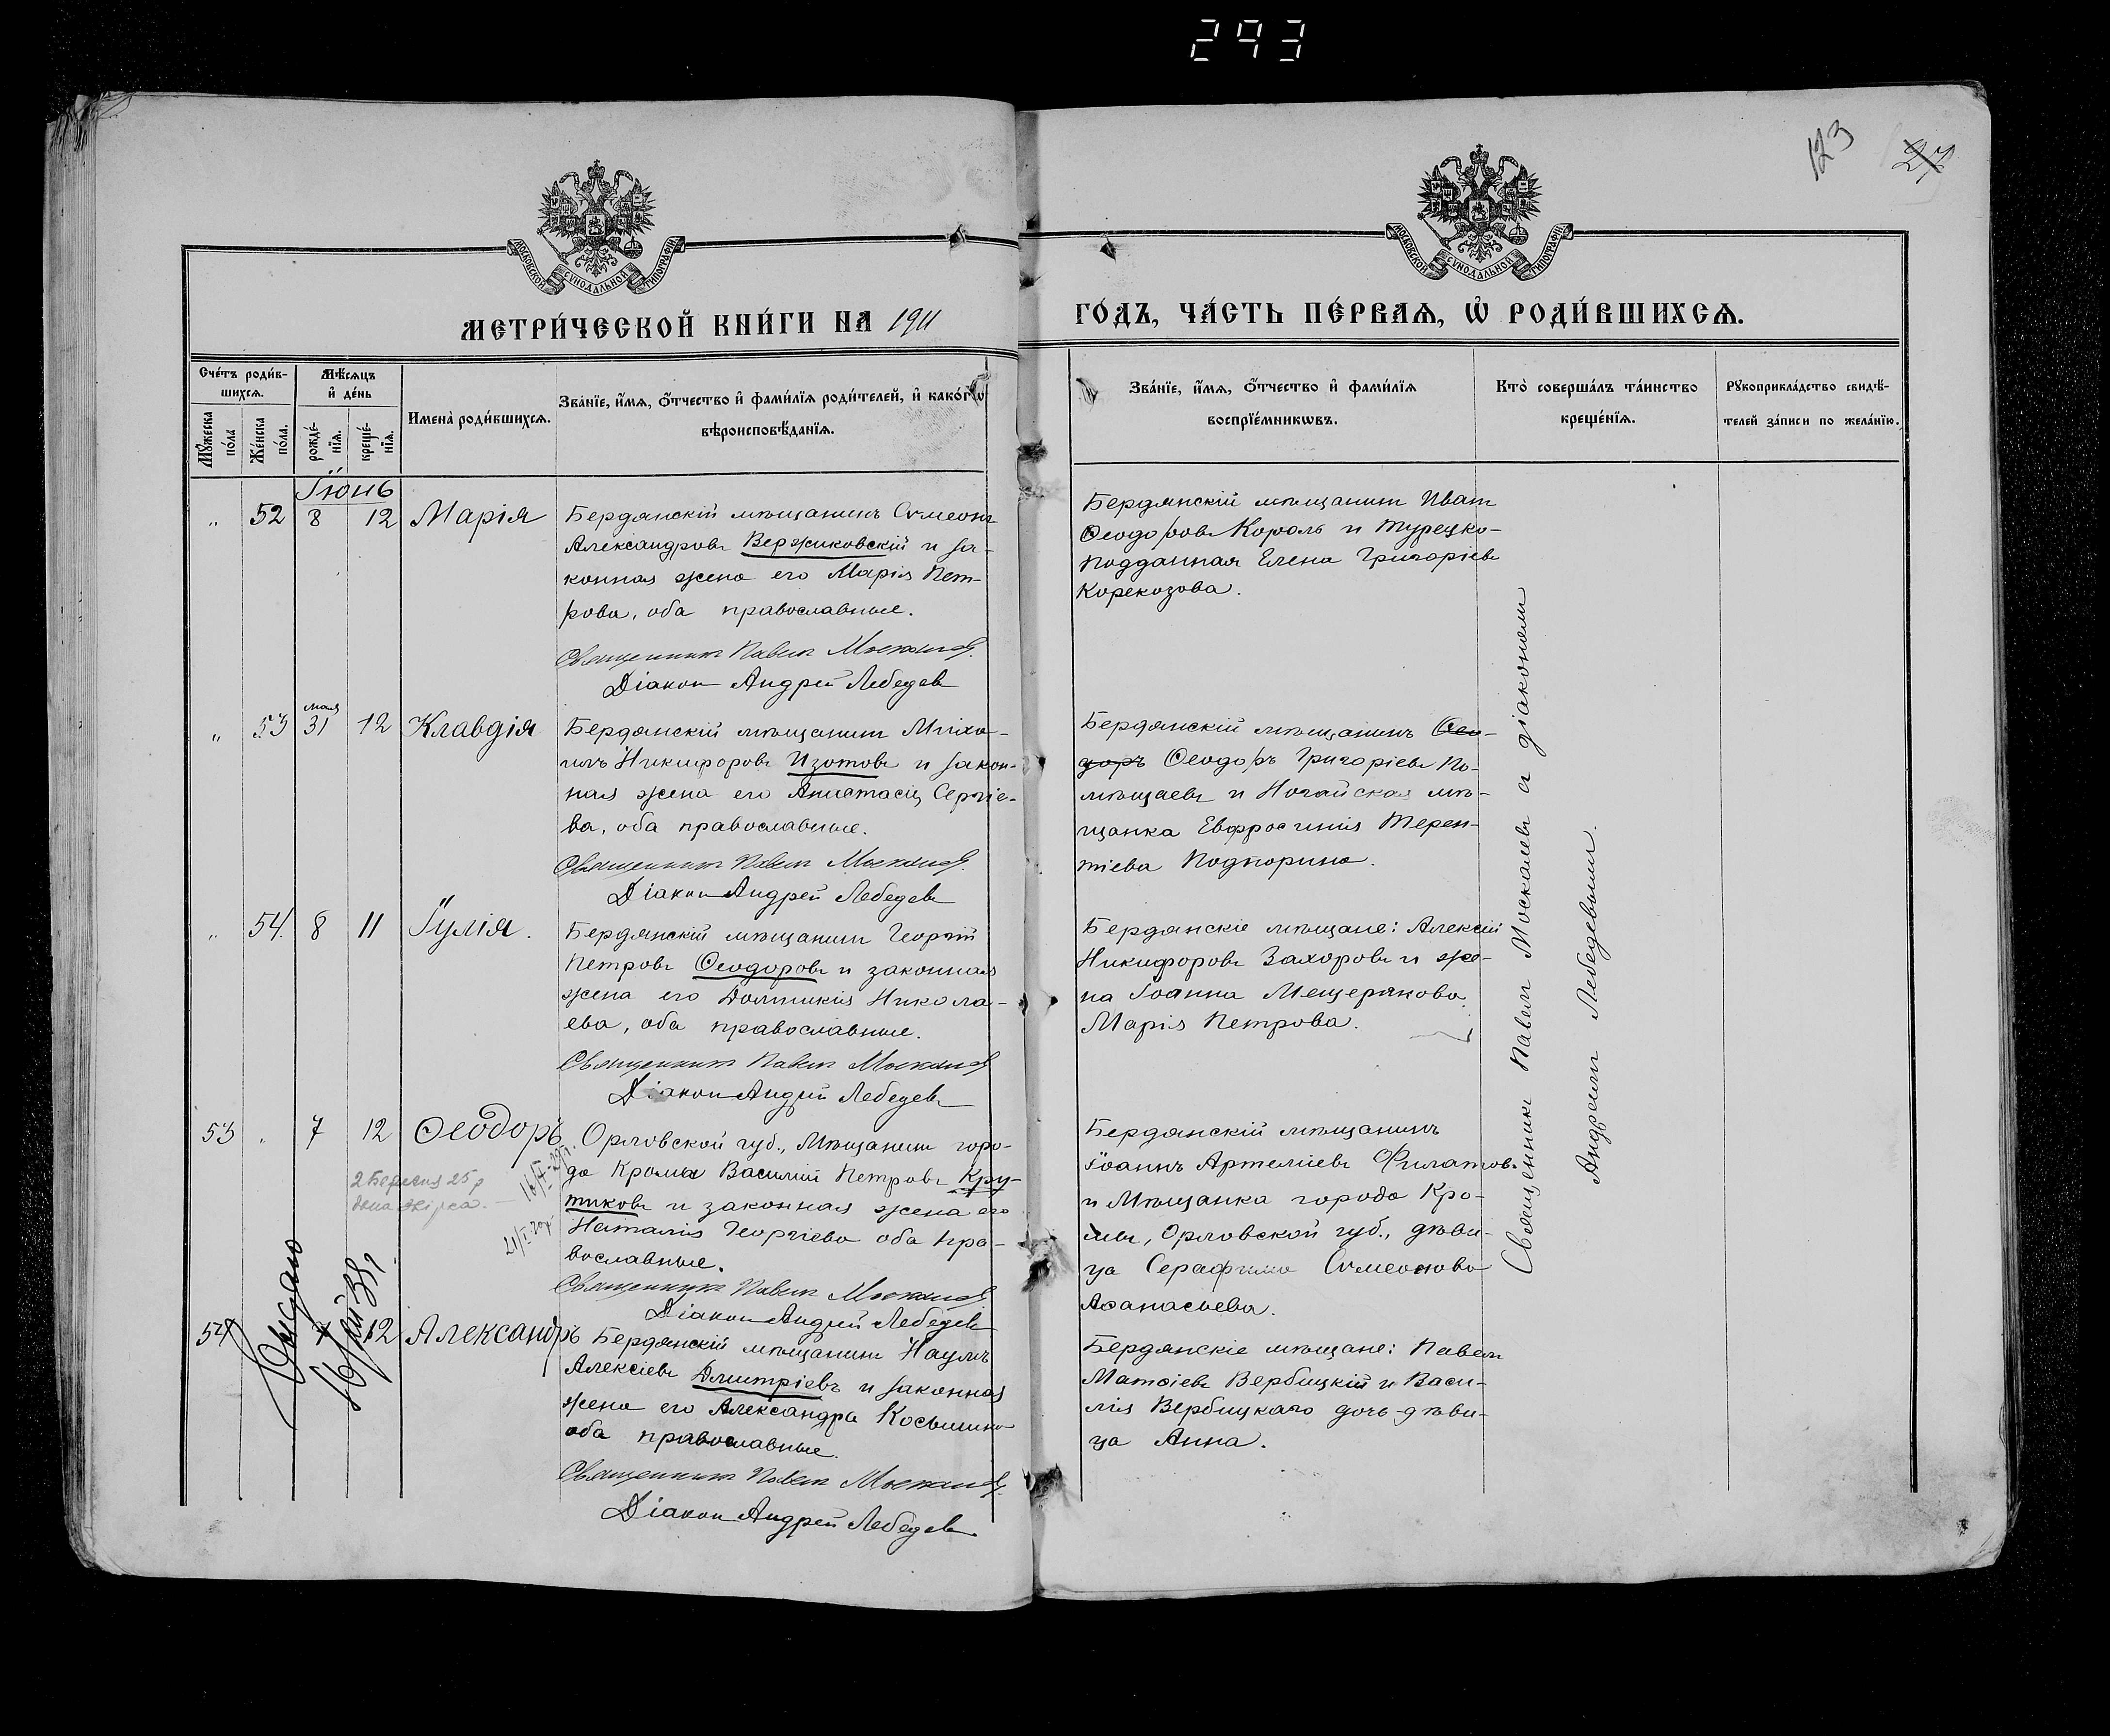 293
123
27
МОСКОВСКОЙ СѴНОДАЛЬНОЙ ТИПОГРАФІИ
МОСКОВСКОЙ СѴНОДАЛЬНОЙ ТИПОГРАФІИ
МЕТРИ́ЧЕСКОЙ КНИ́ГИ НА 1911
ГО́ДЪ, ЧА́СТЬ ПЕ́РВАѦ, Ѡ҆ РОДИ́ВШИХСѦ.
Сче́тъ роди́в-
шихсѧ.
Мꙋ́жеска по́ла
Же́нска по́ла.
Мѣ́сѧцъ
и҆ де́нь
рожде́-
нїѧ.
креще́-
нїѧ.
Имена̀ роди́вшихсѧ.
Зва́нїе, и҆́мѧ, ѻ҆́тчество и҆ фами́лїѧ роди́телей, и҆ како́гѡ
вѣроисповѣ́данїѧ.
Зва́нїе, и҆́мѧ, ѻ҆́тчество и҆ фами́лїѧ
воспрїе́мникѡвъ.
Кто̀ соверша́лъ та́инство
креще́нїѧ.
Рꙋкоприкла́дство свидѣ́-
телей за́писи по жела́нїю.
Іюнь
„ 52 8 12 Марія
Бердянскій мѣщанинъ Сѵмеонъ
Александровъ Вержиковскій и за-
конная жена его Марія Пет-
рова, оба православные.
Священникъ Павелъ Москалевъ.
Діаконъ Андрей Лебедевъ
Бердянскій мѣщанинъ Иванъ
Ѳеодоровъ Король и турецко-
подданная Елена Григоріева
Корекозова.
мая
„ 53 31 12 Клавдія
Бердянскій мѣщанинъ Михо-
илъ Никифоровъ Изотовъ и закон-
ная жена его Анастасія Сергіе-
ва, оба православные.
Священникъ Павелъ Москалевъ.
Діаконъ Андрей Лебедевъ
Бердянскій мѣщанинъ Ѳео-
доръ Ѳеодоръ Григоріевъ По-
мѣщаевъ и Ногайская мѣ-
щанка Евфросинія Терен-
тіева Подпорина.
„ 54. 8 11 Іулія.
Бердянскій мѣщанинъ Георгій
Петровъ Ѳеодоровъ и законная
жена его Домникія Никола-
ева, оба православные.
Священникъ Павелъ Москалевъ
Діаконъ Андрей Лебедевъ
Бердянскіе мѣщане: Алексій
Никифоровъ Захоровъ и же-
на Іоанна Мещерякова
Марія Петрова.
53 „ 7 12 Ѳеодоръ
Орловской губ., мѣщанинъ горо-
да Кромы Василій Петровъ Кру-
тиковъ и законная жена его
Наталія Георгіева оба пра-
вославные.
Священникъ Павелъ Москалевъ
Діаконъ Андрей Лебедевъ
Бердянскій мѣщанинъ
Іоаннъ Артеміевъ Филатовъ
и мѣщанка города Кро-
мы, Орловской губ., дѣви-
ца Серафима Сѵмеонова
Аѳанасьева.
54 7 12 Александръ
Бердянскій мѣщанинъ Наумъ
Алексіевъ Дмитріевъ и законная
жена его Александра Косьмина
оба православные.
Священникъ Павелъ Москалевъ.
Діаконъ Андрей Лебедевъ.
Бердянскіе мѣщане: Павелъ
Матѳіевъ Вербицкій и Васи-
лія Вербицкаго дочь-дѣви-
ца Анна.
Священникъ Павелъ Москалевъ съ діакономъ
Андреемъ Лебедевымъ.